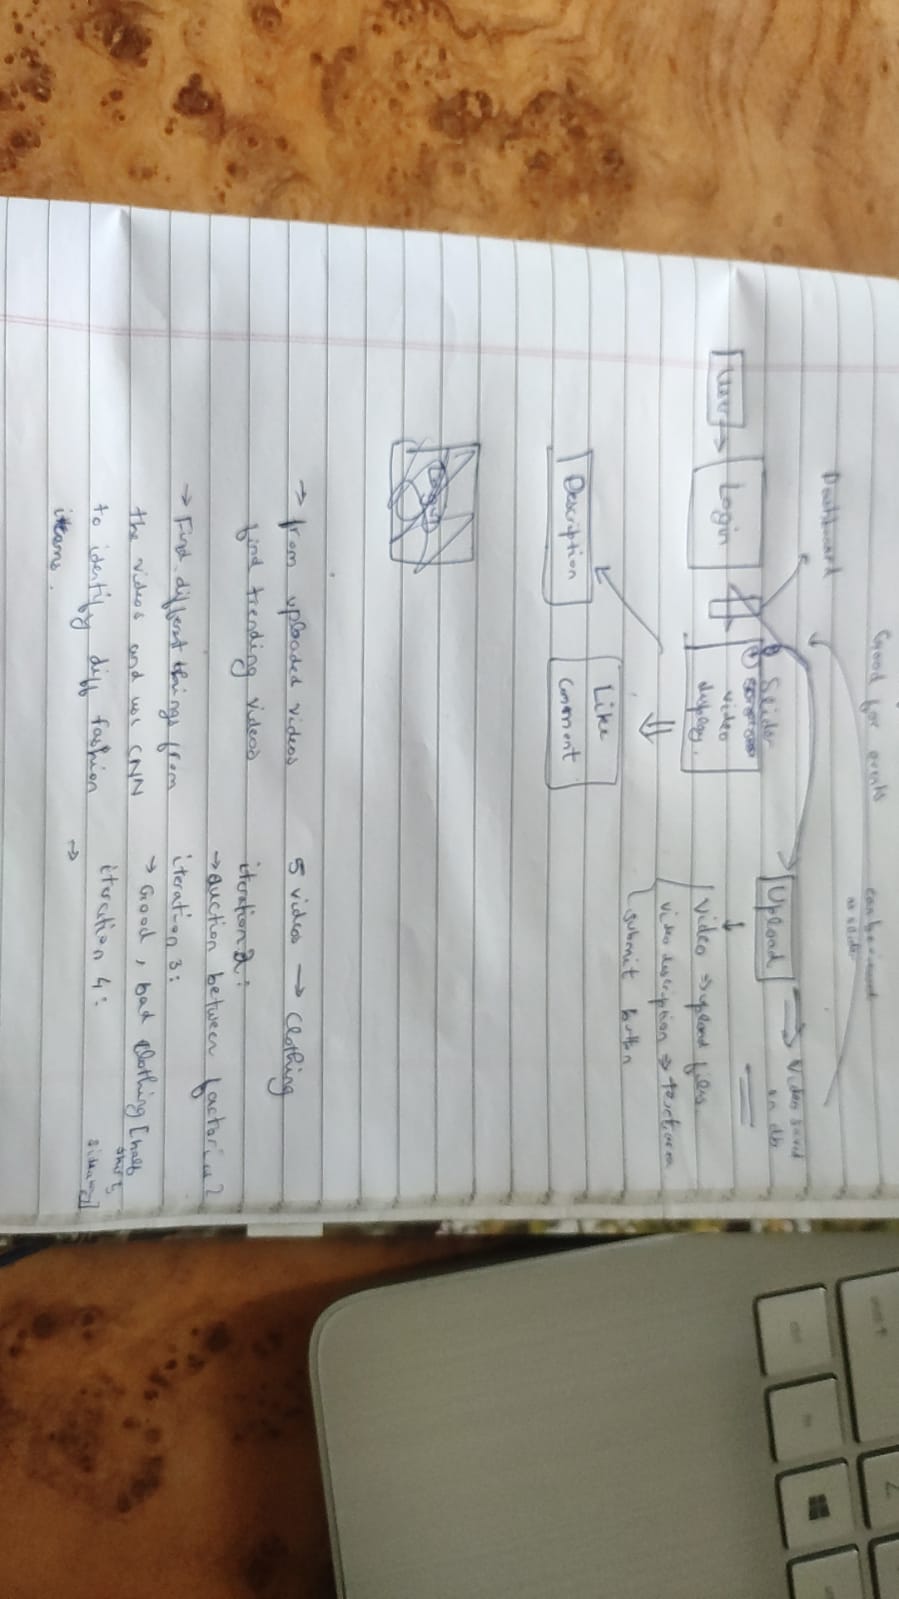 Good for events
can be viewed
as slider
Dashboard
User
Login
Slider
video
display.
Upload
Video saved
on db
video => upload files.
video description => textarea
submit button
Description
Like
Comment
→ from uploaded videos
find trending videos
→ Find different things from
the videos and use CNN
to identify diff fashion
items.
5 videos → Clothing
iteration 2:
→ auction between factories?
iteration 3:
→ Good, bad clothing [half
iteration 4:
→